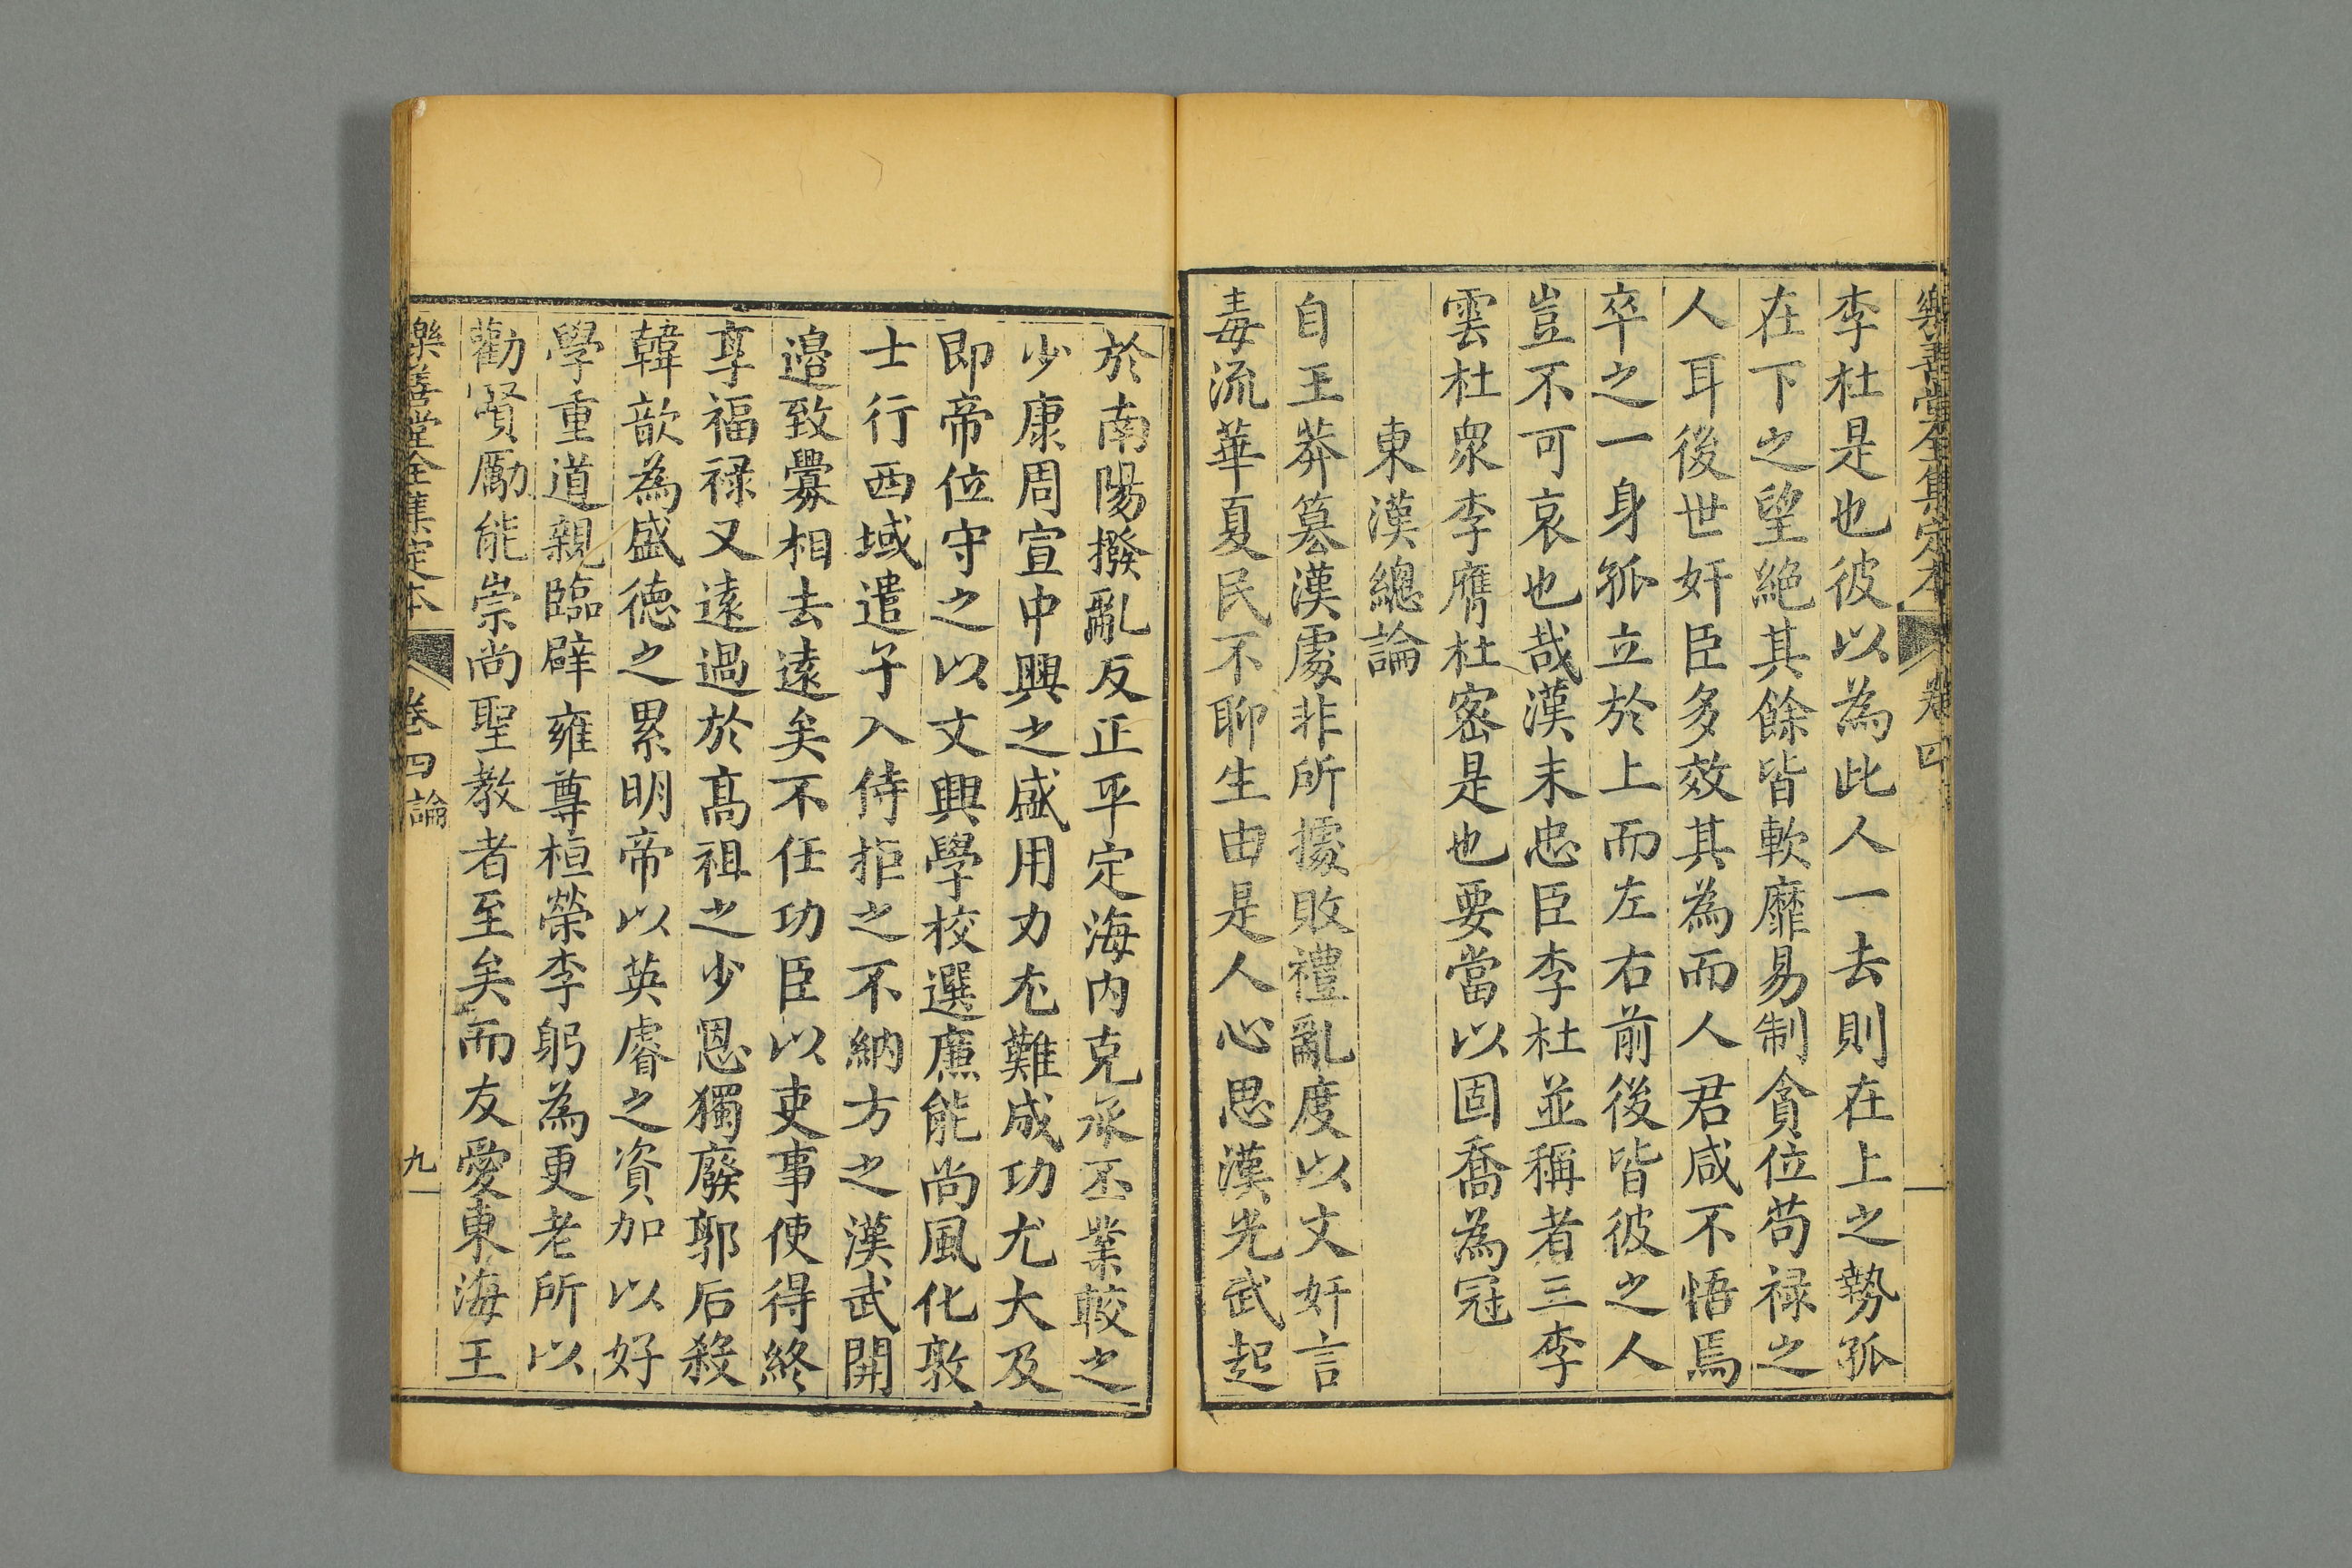 樂善堂全集定本 卷四
李杜是也彼以為此人一去則在上之勢孤
在下之望絕其餘皆軟靡易制貪位苟祿之
人耳後世奸臣多效其為而人君咸不悟焉
卒之一身孤立於上而左右前後皆彼之人
豈不可哀也哉漢末忠臣李杜並稱者三李
雲杜眾李膺杜密是也要當以固喬為冠
東漢總論
自王莽篡漢處非所據敗禮亂度以文奸言
毒流華夏民不聊生由是人心思漢光武起
於南陽撥亂反正平定海內克承丕業較之
少康周宣中興之盛用力尤難成功尤大及
即帝位守之以文興學校選廉能尚風化敦
士行西域遣子入侍拒之不納方之漢武開
邊致釁相去遠矣不任功臣以吏事使得終
享福祿又遠過於高祖之少恩獨廢郭后殺
韓歆為盛德之累明帝以英睿之資加以好
學重道親臨辟雍尊桓榮李躬為更老所以
勸賢勵能崇尚聖教者至矣而友愛東海王
樂善堂全集定本 卷四論 九